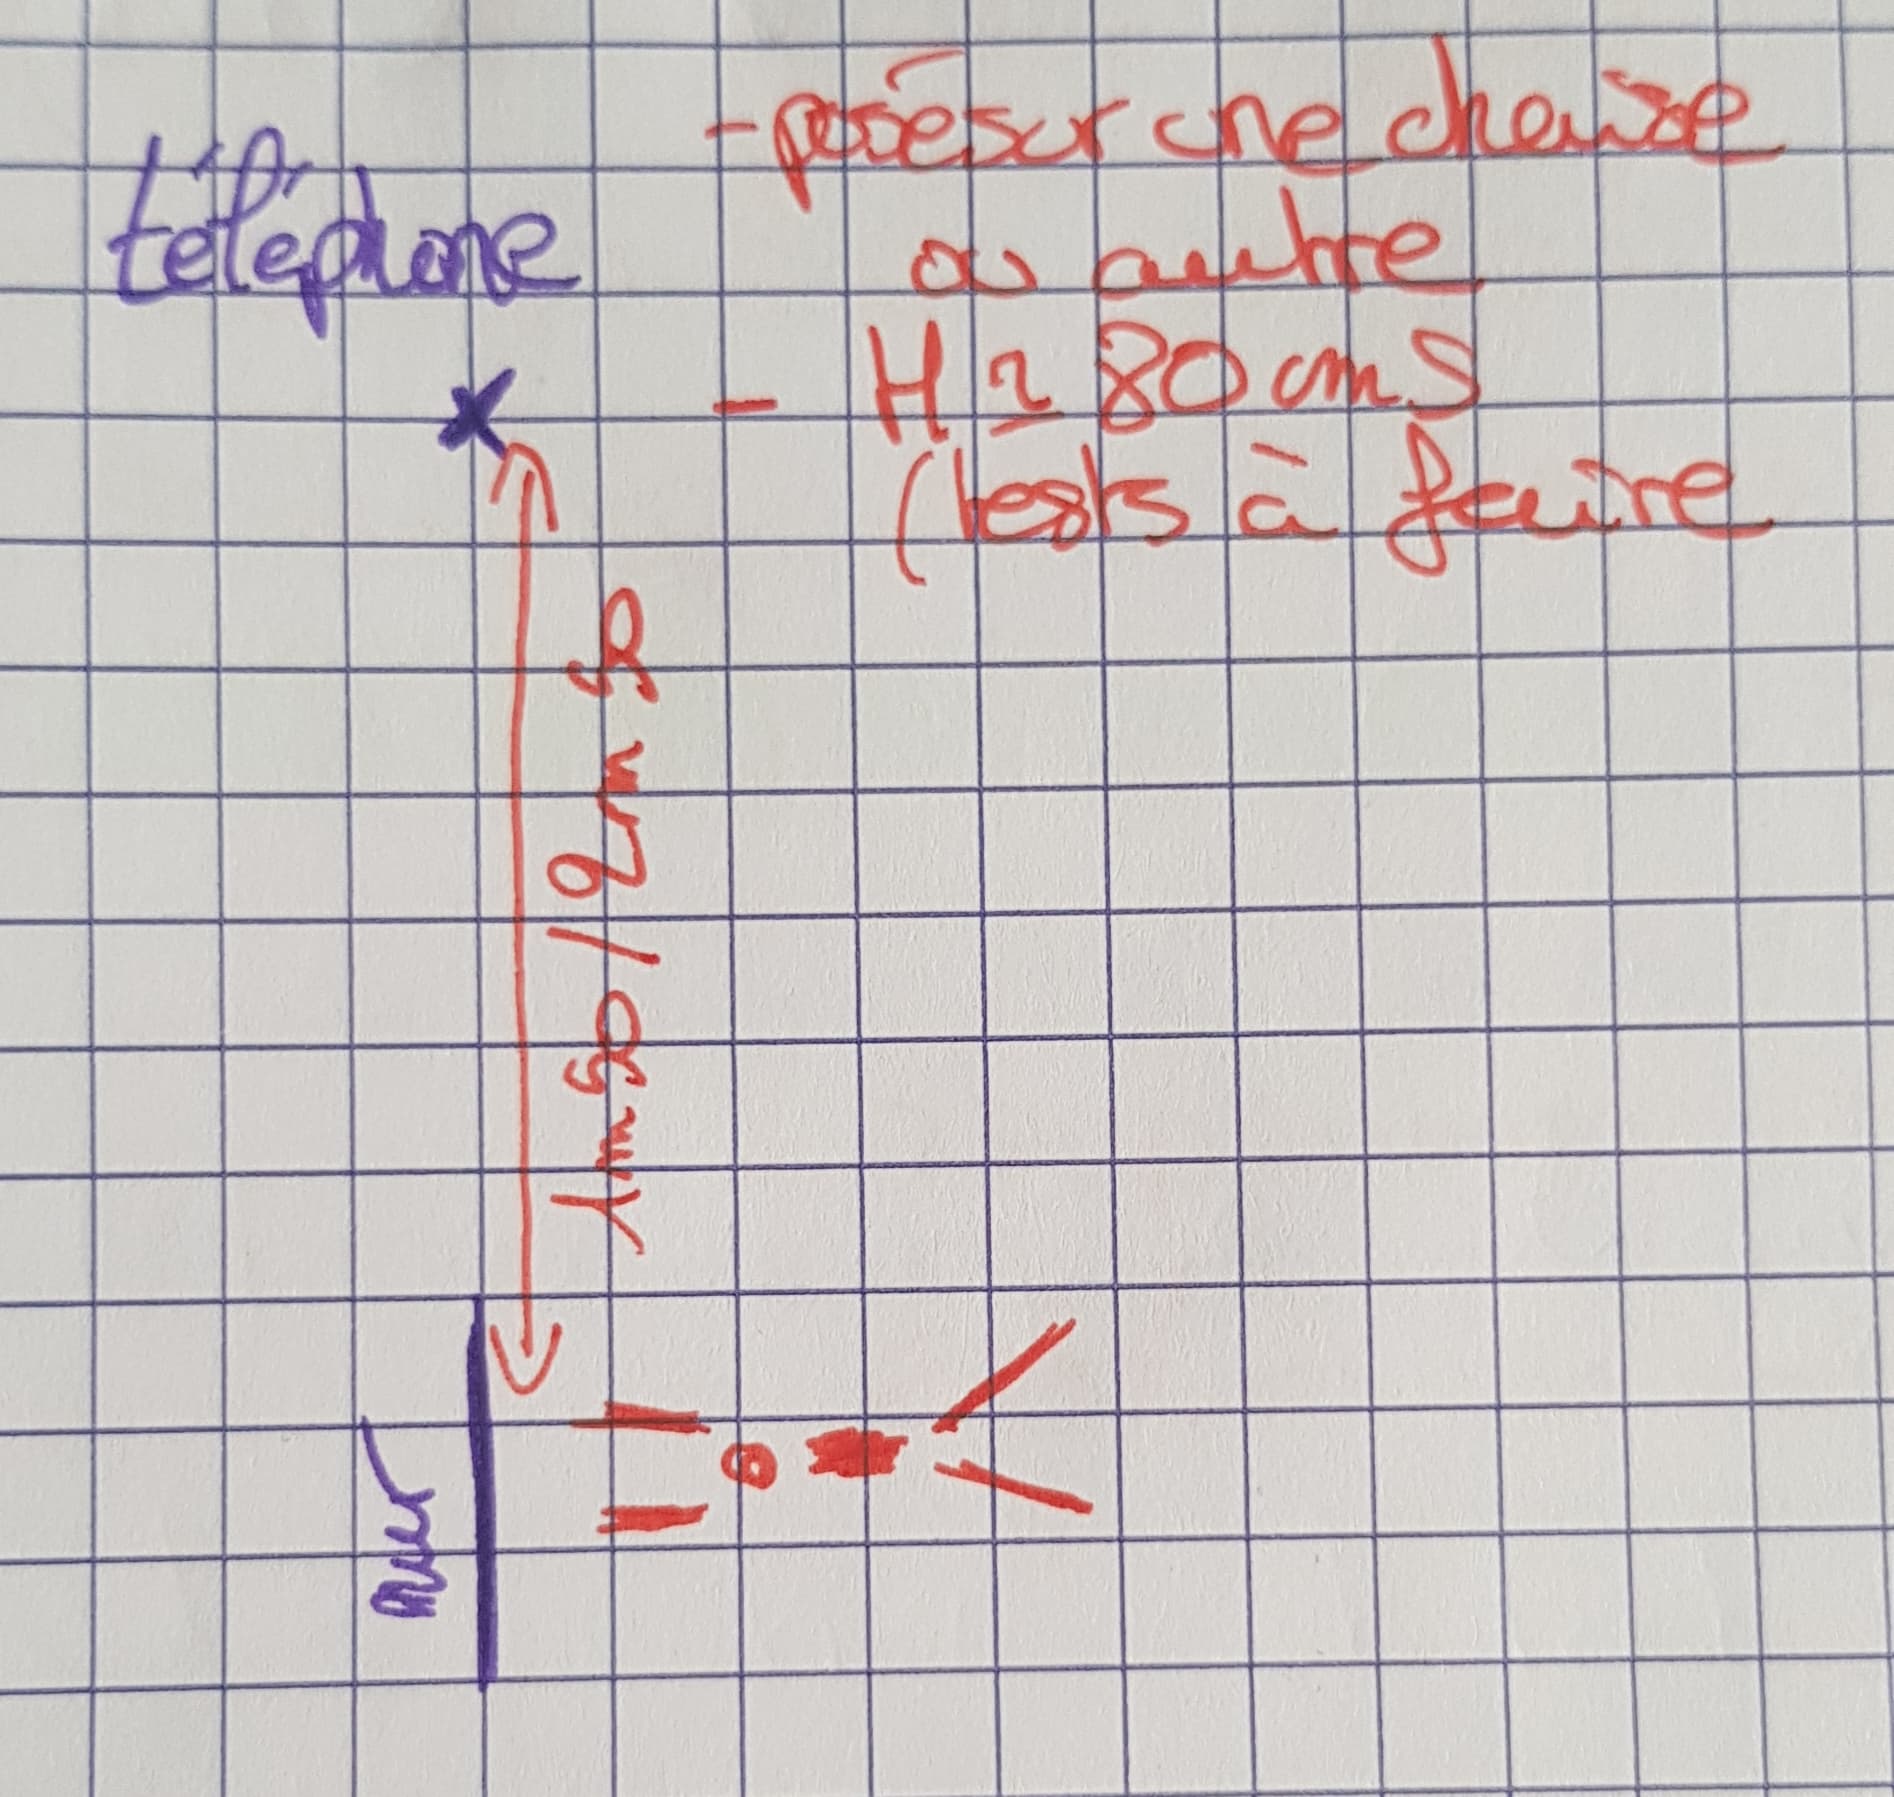 téléphone
- posé sur une chaise
ou autre
- H ≃ 80 cms
(tests à faire
1m50 / 2m50
mur